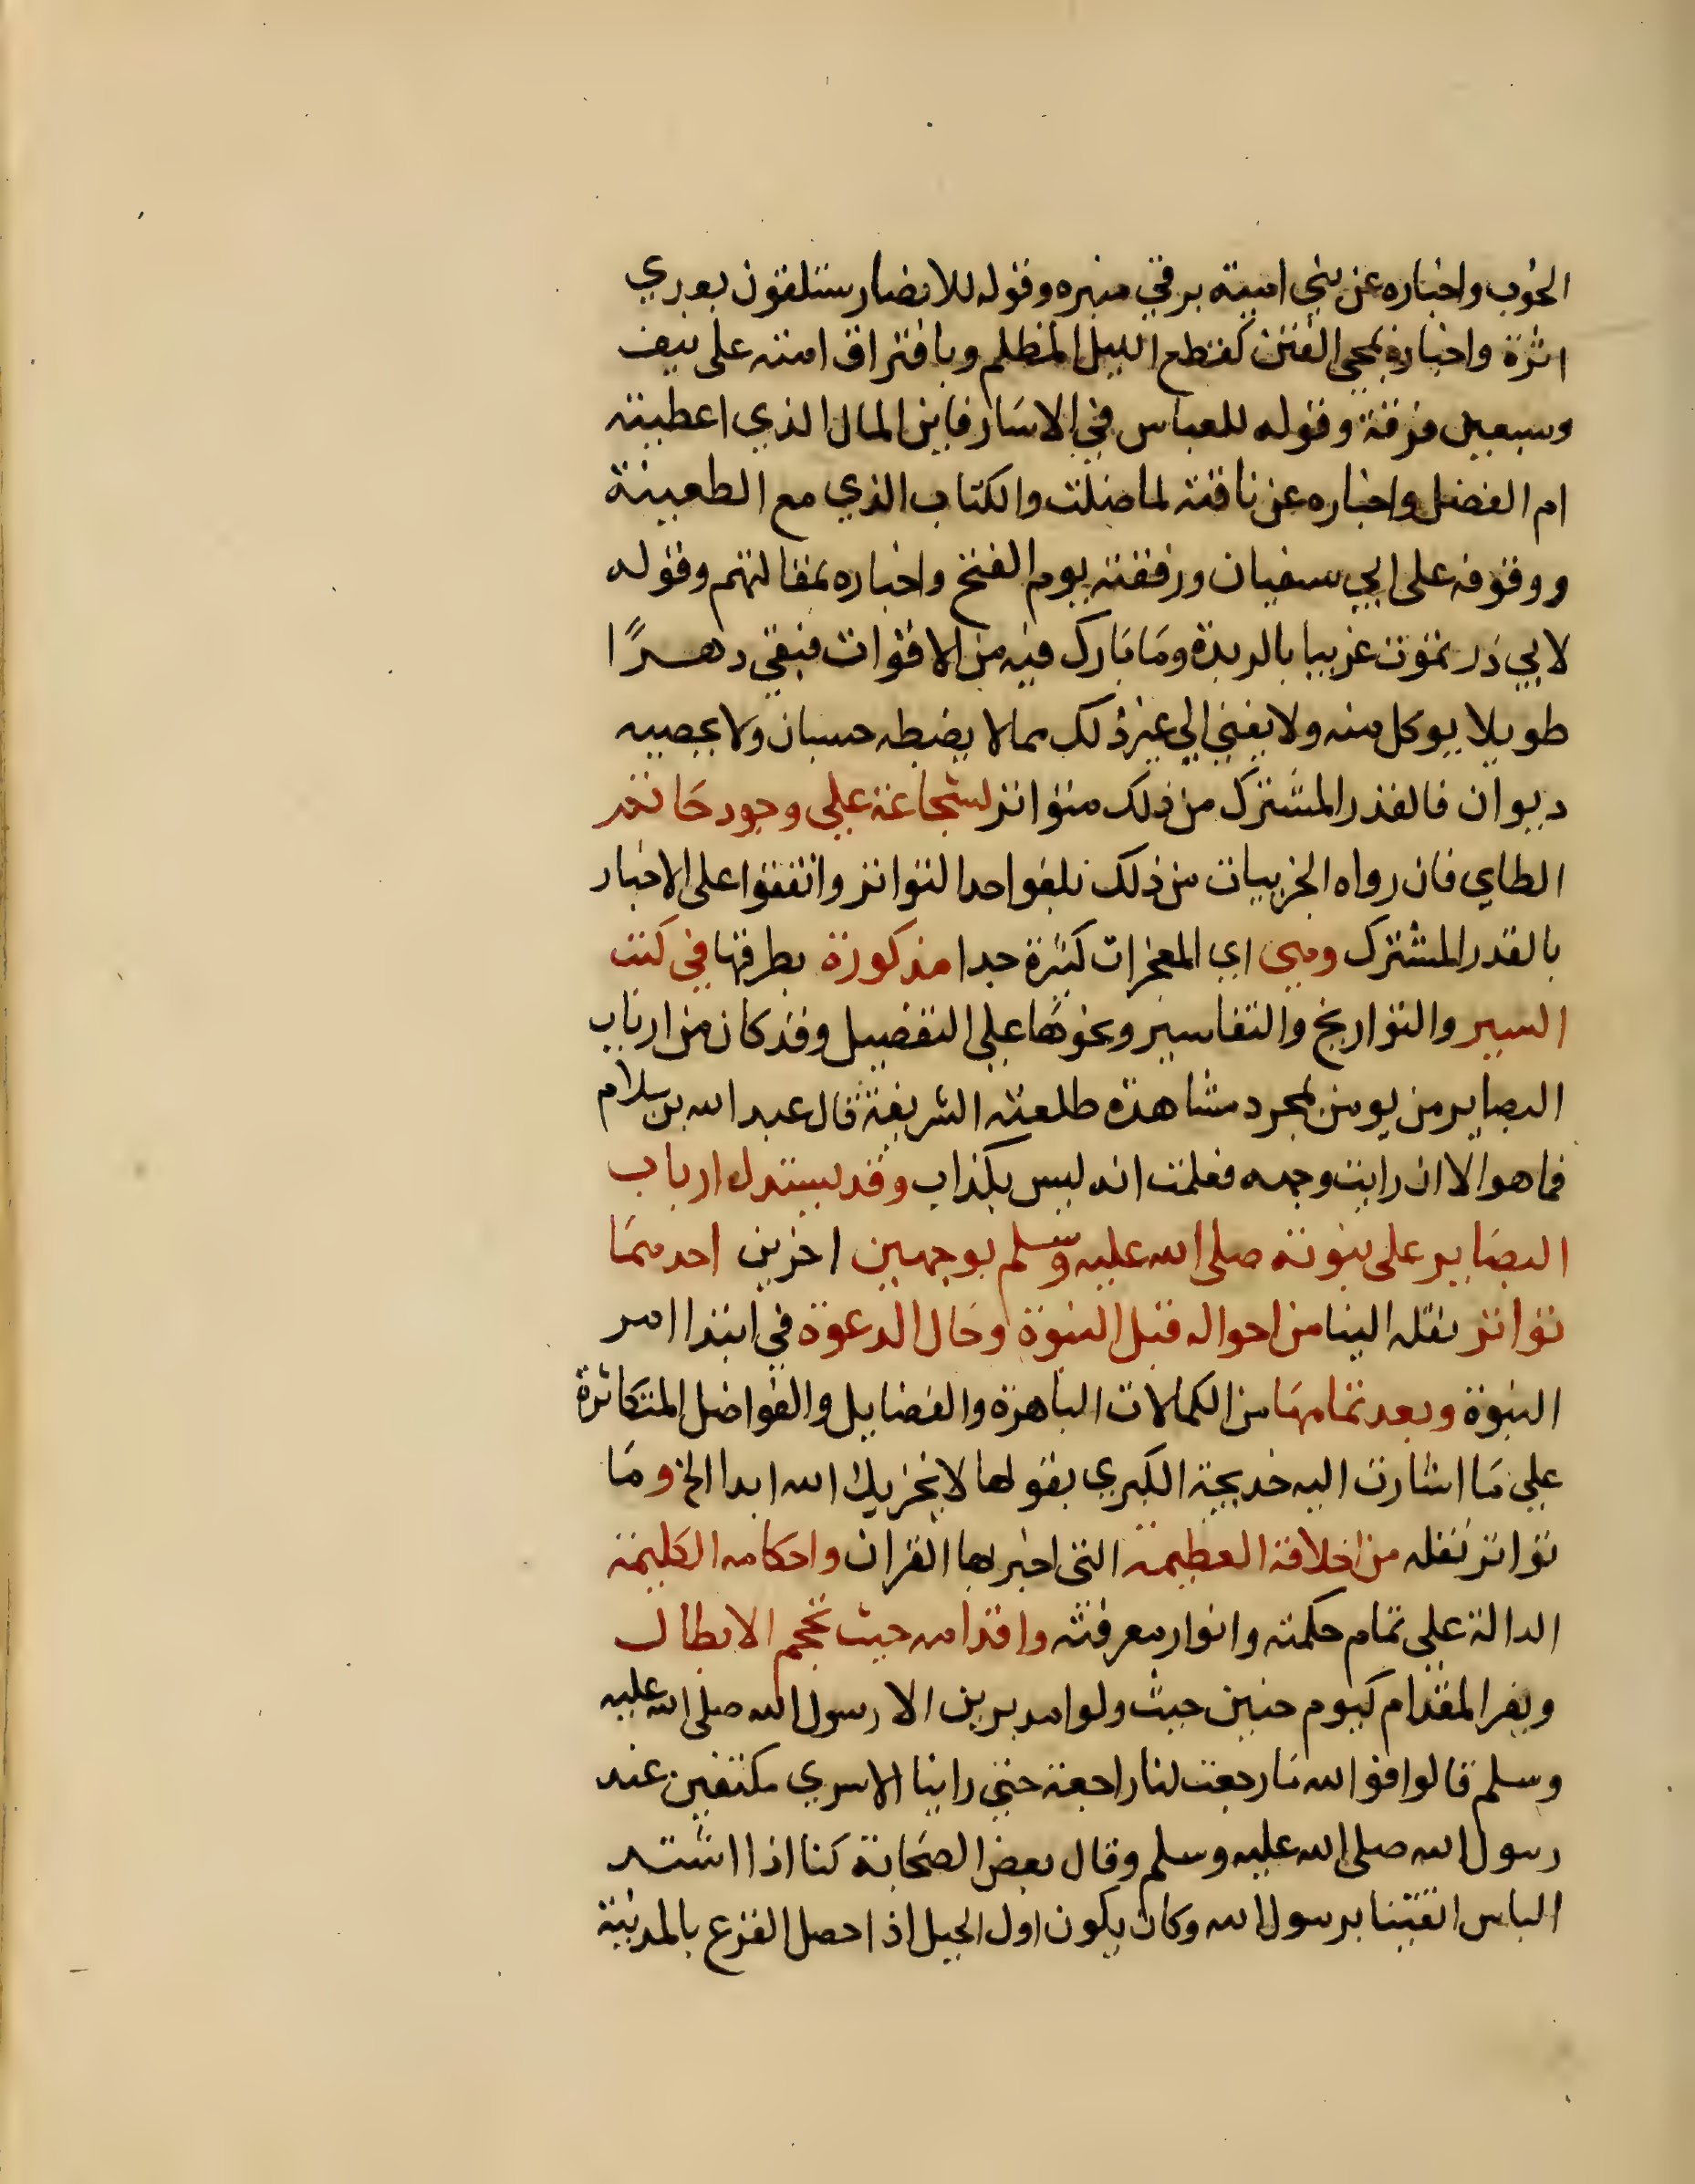 الحوب واخباره عن بني امية برقي منبره وقوله للانصار ستلقون بعدي
اثرة واخباره بمجي الفتن كقطع الليل المظلم وبافتراق امته على نيف
وسبعين فرقة وقوله للعباس في الاسار فاين المال الذي اعطيته
ام الفضل واخباره عن ناقته لما ضلت والكتاب الذي مع الظعينة
ووقوفه على ابي سفيان ورفقته يوم الفتح واخباره بمقالتهم وقوله
لابي ذر تموت غريبا بالربذة وما بارك فيه من الاقوات فبقي دهرًا
طويلا يوكل منه ولا يفني الي غير ذلك مما لا يضبطه حسبان ولا يحصيه
ديوان فالقدر المشترك من ذلك متواتر لشجاعة علي وجود حاتم
الطاي فان رواه الجزييات من ذلك بلغوا حد التواتر واتفقوا على الاخبار
بالقدر المشترك وهي اي المعجزات كثيرة جدا مذكورة بطرقها في كتب
السير والتواريخ والتفاسير ونحوها على التفصيل وقد كان من ارباب
البصاير من يومن بمجرد مشاهدة طلعته الشريفة قال عبد الله بن سلام
فما هو الا ان رايت وجهه فعلمت انه ليس بكذاب وقد يستدل ارباب
البصاير على نبوته صلى الله عليه وسلم بوجهين اخرين احدهما
تواتر نقله الينا من احواله قبل النبوة وحال الدعوة في ابتدا امر
النبوة وبعد تمامها من الكمالات الباهرة والفضايل والفواضل المتكاثرة
علي ما اشارت اليه خديجة الكبري بقولها لا يخزيك الله ابدا الخ وما
تواتر نقله من اخلاقه العظيمة التي اخبر بها القران واحكامه الكليمة
الدالة على تمام حكمته وانوار معرفته واقدامه حيث تحجم الابطال
ويفر المقدام كيوم حنين حيث ولوا مدبرين الا رسول الله صلى الله عليه
وسلم قالوا فوالله ما رجعت لنا راجعة حتي راينا الاسري مكتفين عند
رسول الله صلى الله عليه وسلم وقال بعض الصحابة كنا اذا اشتد
الباس اتقينا برسول الله وكان يكون اول الجيل اذا حصل الفزع بالمدينة